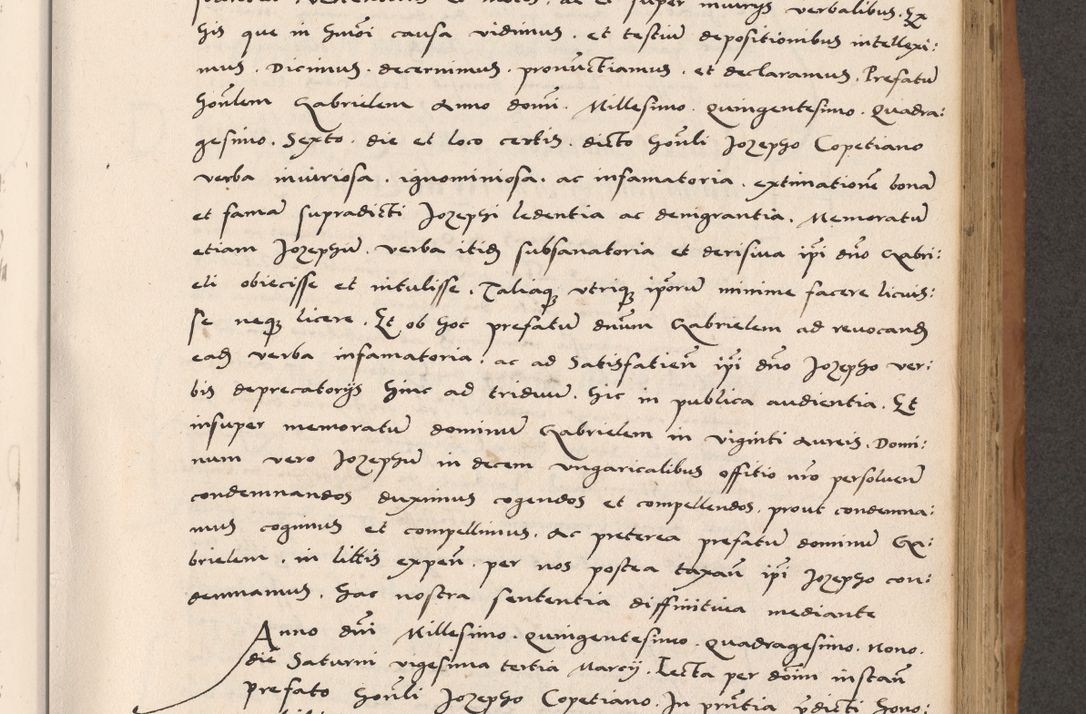 super iniurijs verbalibus. Ex
his que in hmoi causa vidimus. et testiu depositionibus intellexi:
mus. Dicimus. decernimus. pronuctiamus. et declaramus. Prefatu
honlem Gabrielem Anno domi. Millesimo. Quingentesimo. Quadra:
gesimo. Sexto. die et loco certis. dicto honli Jozepho Copetiano
verba iniuriosa. ignominiosa. ac infamatoria. extimatione bona
et fama supradicti Jozephi ledentia ac denigrantia. Memoratu
etiam Jozephu. verba itid subsanatoria et derisiua ipi dno Gabri:
eli obiecisse et intulisse. Taliaq vtriq iporu minime facere licuis:
se neq licere. Et ob hoc prefatu dnum Gabrielem ad reuocand
ead verba infamatoria. ac ad Satisfatien ipi dno Jozepho ver:
bis deprecatorijs hinc ad triduu. hic in publica audientia. Et
insuper memoratu dominu Gabrielem in viginti Aureis. Domi:
num vero Jozephu in decem vngaricalibus offitio nro persoluen
condemnandos duximus cogendos et compellendos. prout condemna:
mus cogimus et compellimus. Ac preterea prefatu dominu Ga:
brielem. in littis expen. per nos postea taxan ipi Jozepho con:
demnamus. hac nostra sententia diffinitiua mediante
Anno dni Millesimo. Quingentesimo. Quadragesimo. Nono.
die Saturni vigesima tertia Marcij. Lecta per domi instan
prefato honli Jozepho Copetiano. In pntia pdicti hono: